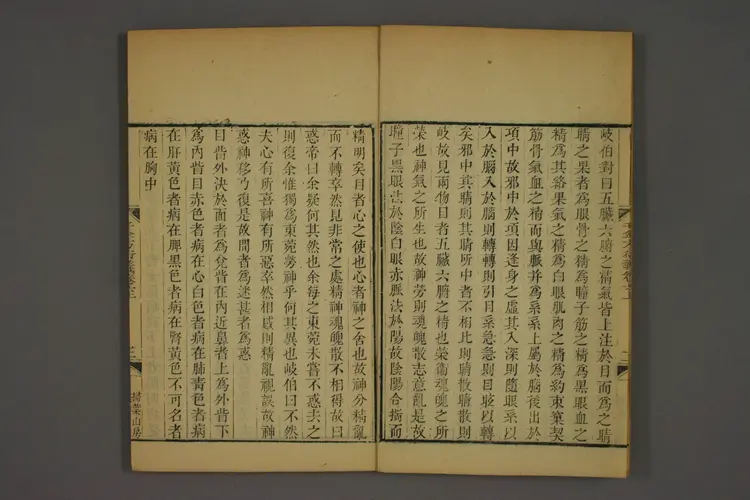 岐伯對曰五臟六腑之精氣皆上注於目而為之睛
睛之果者為眼骨之精為瞳子筋之精為黑眼血之
精為其絡果氣之精為白眼肌肉之精為約束裹契
筋骨氣血之精而與脈并為系系上屬於腦後出於
項中故邪中於項因逢身之虛其入深則隨眼系以
入於腦入於腦則轉轉則引目系急急則目眩以轉
矣邪中其睛則其睛所中者不相比則睛散睛散則
岐故見兩物目者五臟六腑之精也榮衛魂魄之所
榮也神氣之所生也故神勞則魂魄散志意亂是故
瞳子黑眼法於陰白眼赤脈法於陽故陰陽合揣而
精明矣目者心之使也心者神之舍也故神分精亂
而不轉卒然見非常之處精神魂魄散不相得故曰
惑帝曰余疑何其然也余每之東菀未嘗不惑去之
則復余惟獨為東菀勞神乎何其異也岐伯曰不然
夫心有所喜神有所惡卒然相感則精亂視誤故神
惑神移乃復是故間者為迷甚者為惑
曰眥外決於面者為兌眥在內近鼻者上為外眥下
為內眥目赤色者病在心白色者病在肺青色者病
在肝黃色者病在脾黑色者病在腎黃色不可名者
病在胸中
掃葉山房